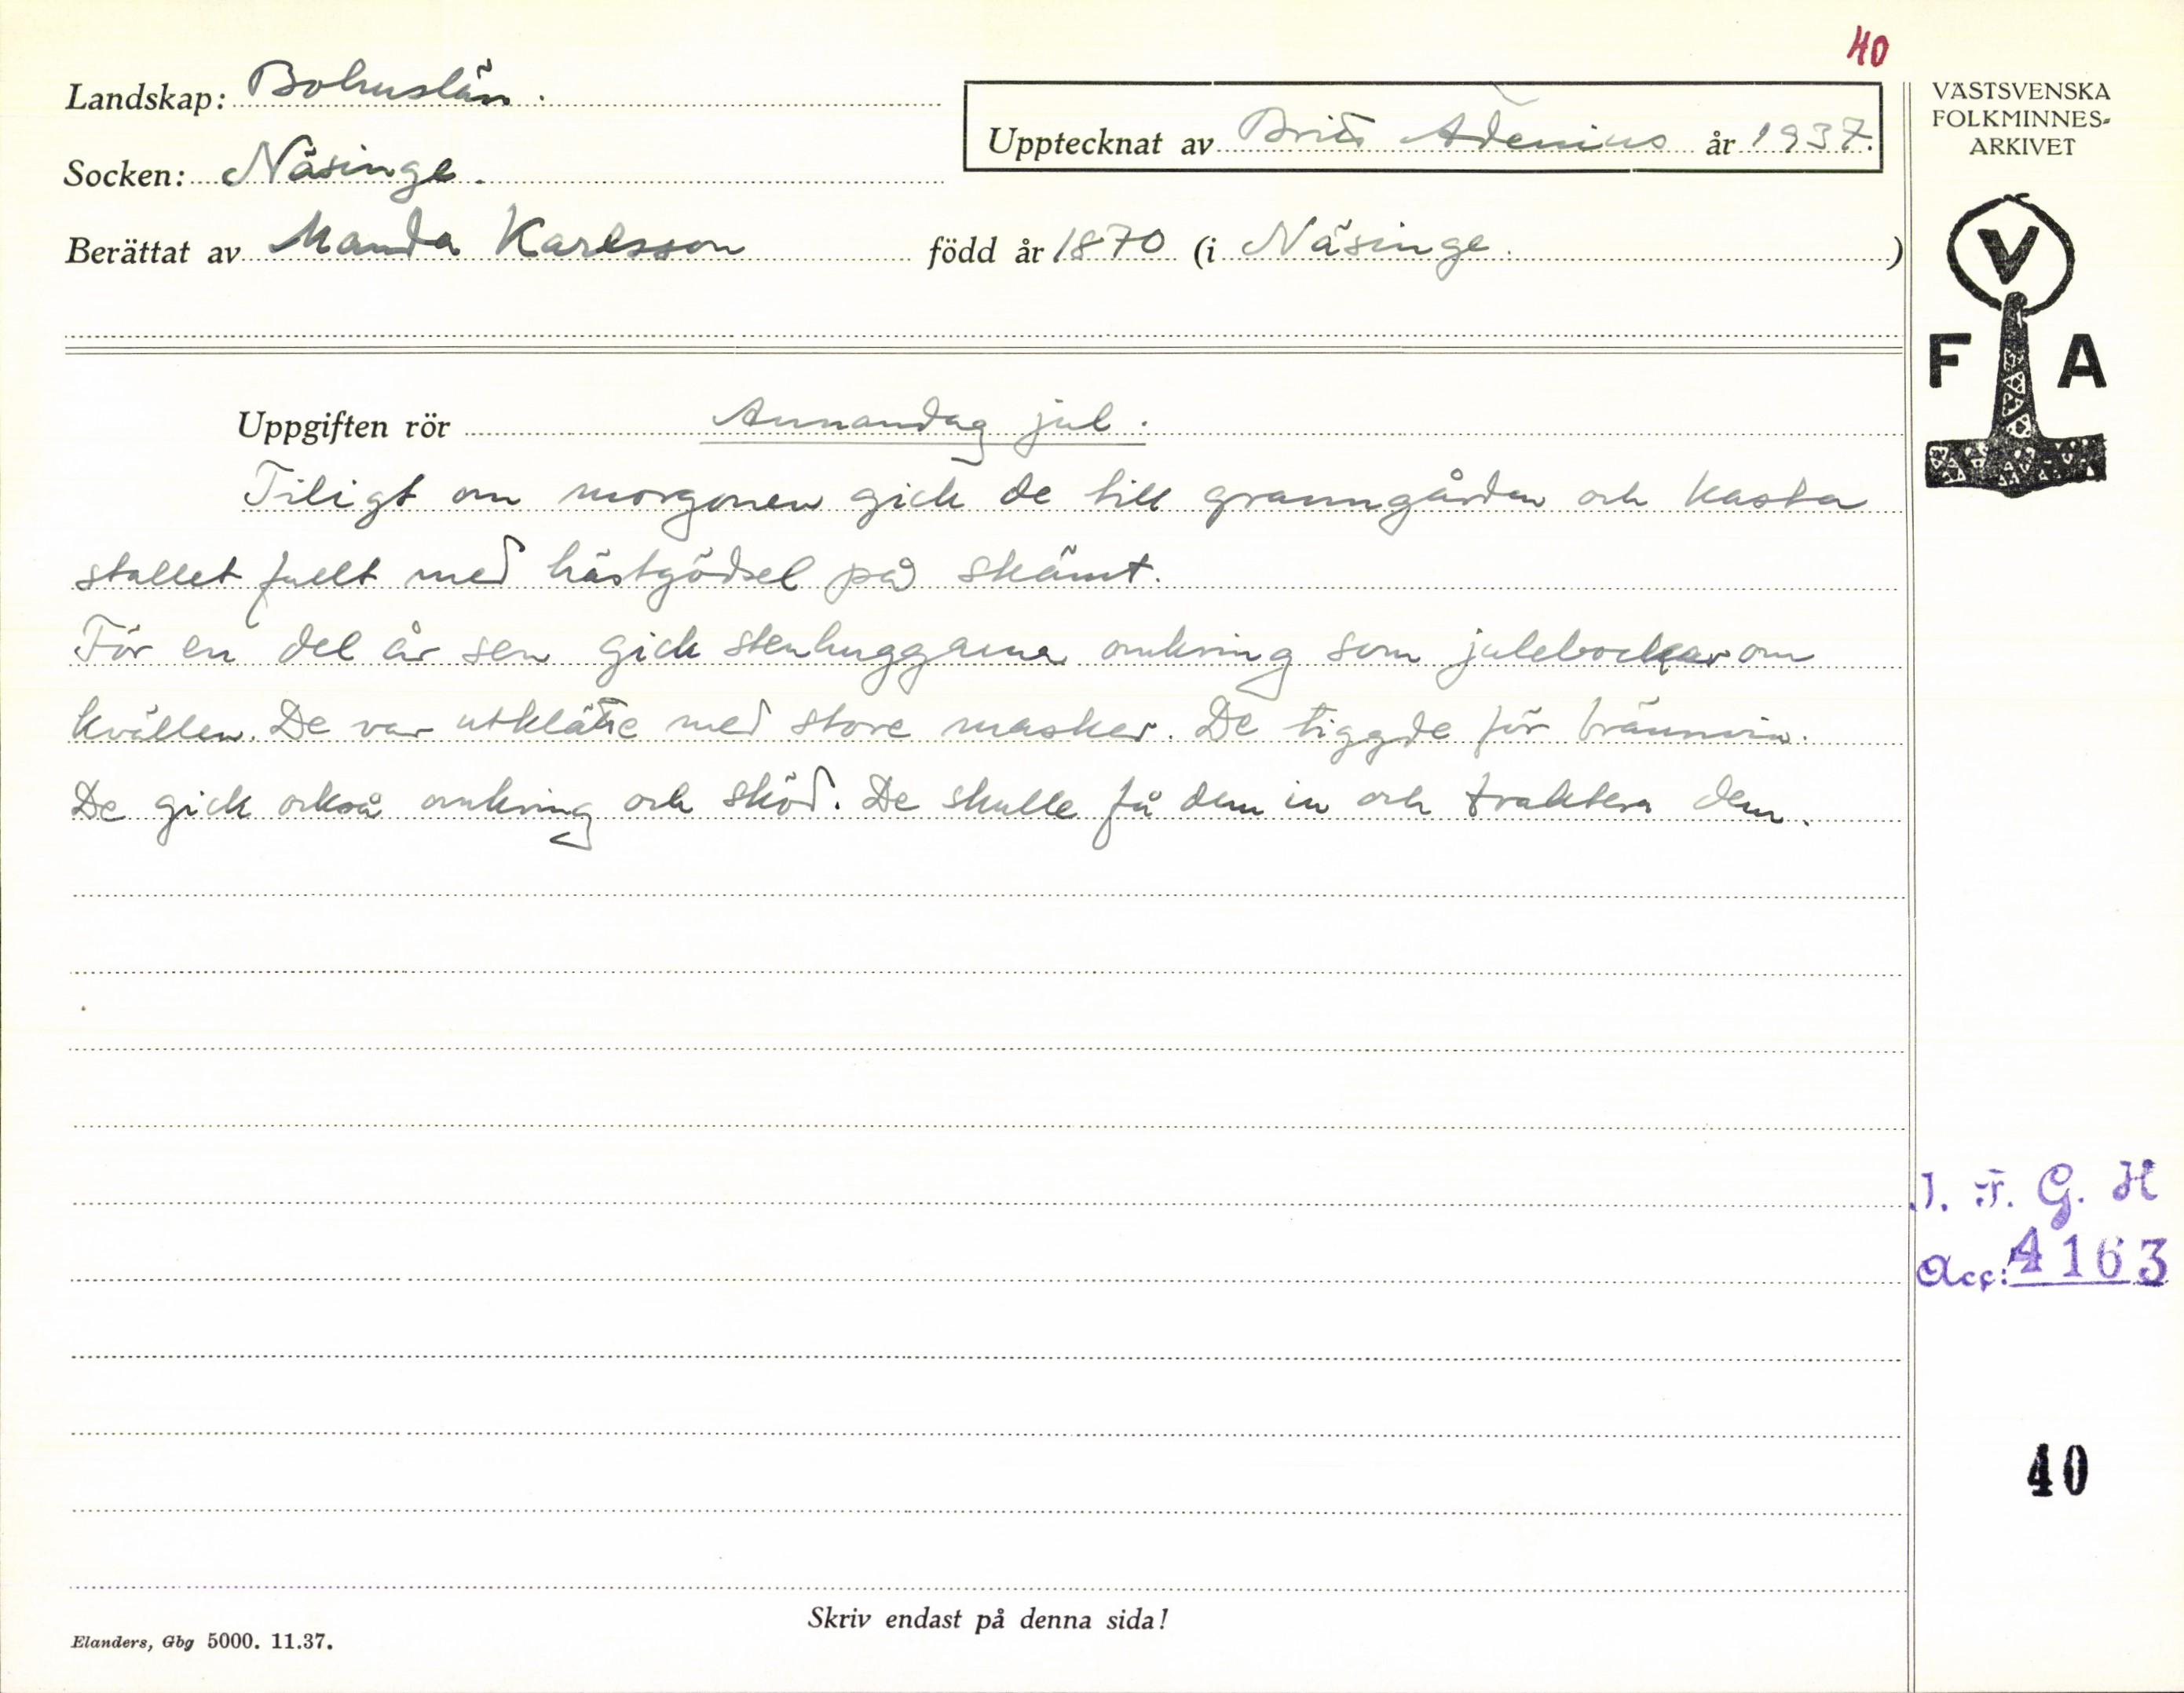 40
Landskap: Bohuslän.
Upptecknat av Brita Adenius år 1937.
Socken: Näsinge.
Berättat av Manda Karlsson född år 1870 (i Näsinge.)
VÄSTSVENSKA
FOLKMINNES-
ARKIVET
V
F A
Uppgiften rör Annandag jul.
Tiligt om morgonen gick de till granngården och kasta
stallet fullt med hästgödsel på skämt.
För en del år sen gick stenhuggarna omkring som julebockar om
kvällen. De var utklädde med store masker. De tiggde för brännvin.
De gick också omkring och sköd. De skulle få dem in och traktera dem.
I. F. G. H
Acc: 4163
40
Skriv endast på denna sida!
Elanders, Gbg 5000. 11.37.